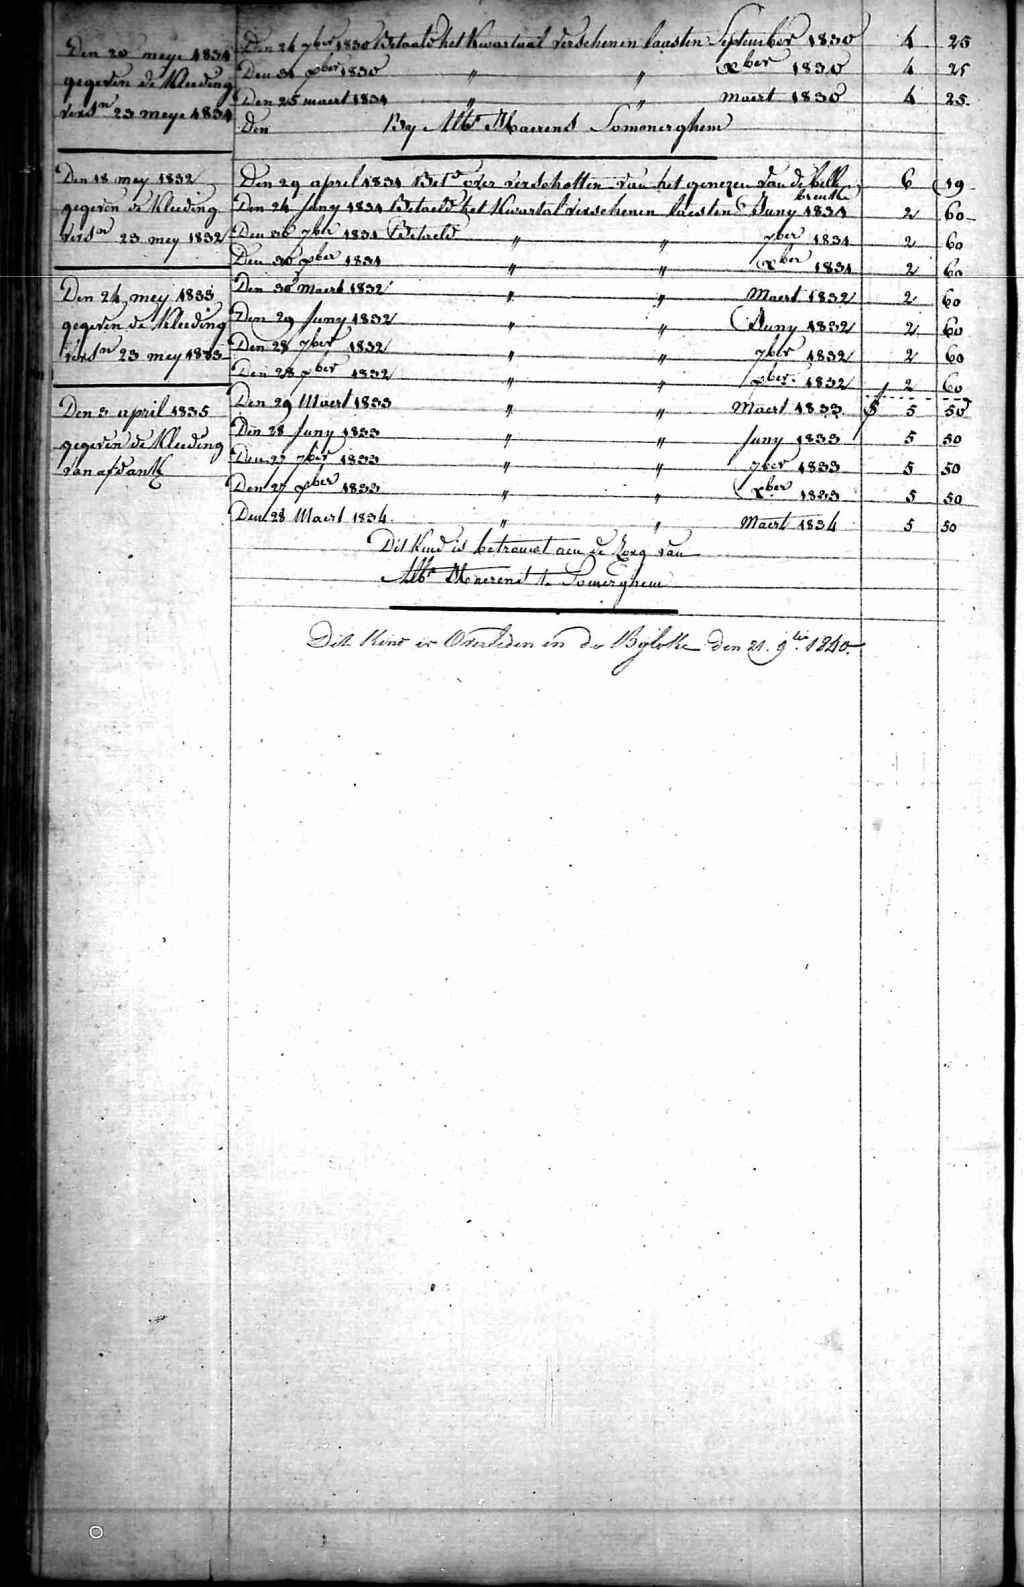 Den 20 meye 1831
gegeven de Kleeding
versn 23 meye 1831
Den 18 mey 1832
gegeven de Kleeding
versn 23 mey 1832
Den 24 mey 1833
gegeven de Kleeding
versn 23 mey 1833
Den 3 april 1835
gegeven de Kleeding
van afdank
Den 24 7ber 1830 Betaald het Kwartaal verschenen laasten September 1830 4 25
Den 31 xber 1830 " " xber 1830 4 25
Den 25 maert 1831 " " Maert 1830 4 25
Den By Maerens Somonerghem
Den 29 april 1831 Betd over verschotten van het genezen van de
breuke 6 19
Den 24 Juny 1831 Betaeld het Kwartal verschenen laesten Juny 1831 2 60
Den 30 7ber 1831 Betaeld " " 7ber 1831 2 60
Den 30 xber 1831 " " xber 1831 2 60
Den 30 Maert 1832 " " Maert 1832 2 60
Den 29 Juny 1832 " " Juny 1832 2 60
Den 28 7ber 1832 " " 7ber 1832 2 60
Den 28 xber 1832 " " xber 1832 2 60
Den 29 Maert 1833 " " Maert 1833 5 50
Den 28 Juny 1833 " " Juny 1833 5 50
Den 27 7ber 1833 " " 7ber 1833 5 50
Den 27 xber 1833 " " xber 1833 5 50
Den 28 Maert 1834 " " Maert 1834 5 50
Dit Kind is betrouwt aen de Zorg van
Maerens te Somerghem
Dit Kind is Overleden in de Byloke den 21. 9bre 1840.